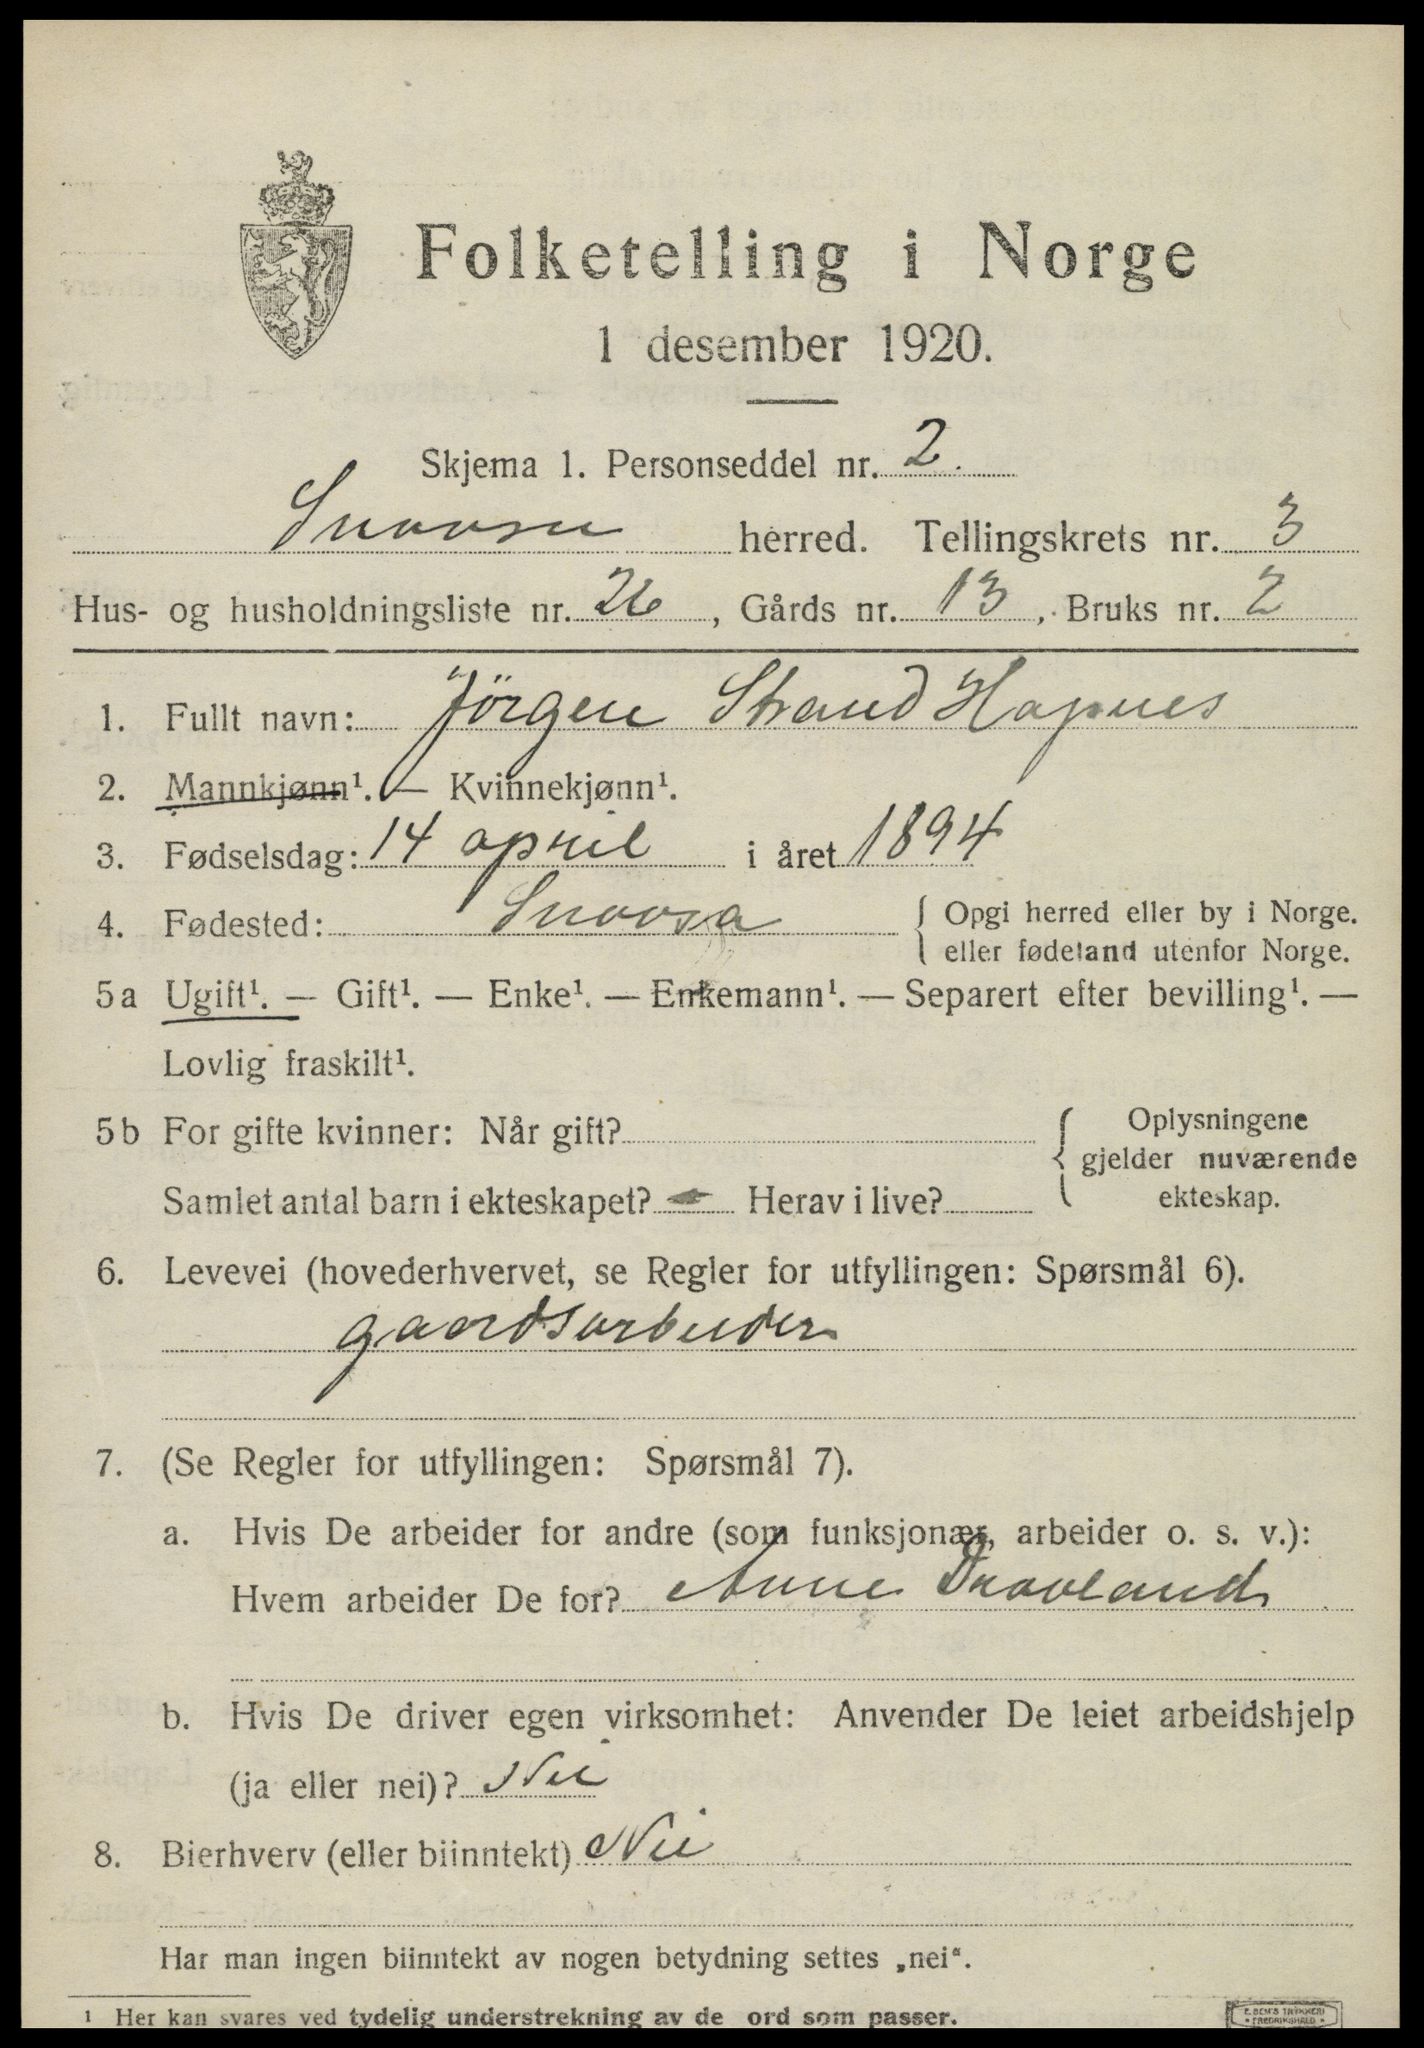 Folketelling i Norge
1 desember 1920.
Skjema 1. Personseddel nr. 2.
Snaasa herred. Tellingskrets nr. 3
Hus- og husholdningsliste nr. 26, Gårds nr. 13, Bruks nr. 2
1. Fullt navn: Jörgen Strand Hapnes
2. Mannkjønn¹. — Kvinnekjønn¹.
3. Fødselsdag: 14 april i året 1894
4. Fødested: Snaasa { Opgi herred eller by i Norge.
eller fødeland utenfor Norge.
5a Ugift¹. — Gift¹. — Enke¹. — Enkemann¹. — Separert efter bevilling¹. —
Lovlig fraskilt¹.
5b For gifte kvinner: Når gift? { Oplysningene
gjelder nuværende
Samlet antal barn i ekteskapet? - Herav i live? ekteskap.
6. Levevei (hovederhvervet, se Regler for utfyllingen: Spørsmål 6).
gaardsarbeider
7. (Se Regler for utfyllingen: Spørsmål 7).
a. Hvis De arbeider for andre (som funksjonær, arbeider o. s. v.):
Hvem arbeider De for? Anne
b. Hvis De driver egen virksomhet: Anvender De leiet arbeidshjelp
(ja eller nei)? Nei
8. Bierhverv (eller biinntekt) Nei
Har man ingen biinntekt av nogen betydning settes „nei“.
¹ Her kan svares ved tydelig understrekning av de ord som passer.
E. SEM'S TRYKKERI
• FREDRIKSHALD •